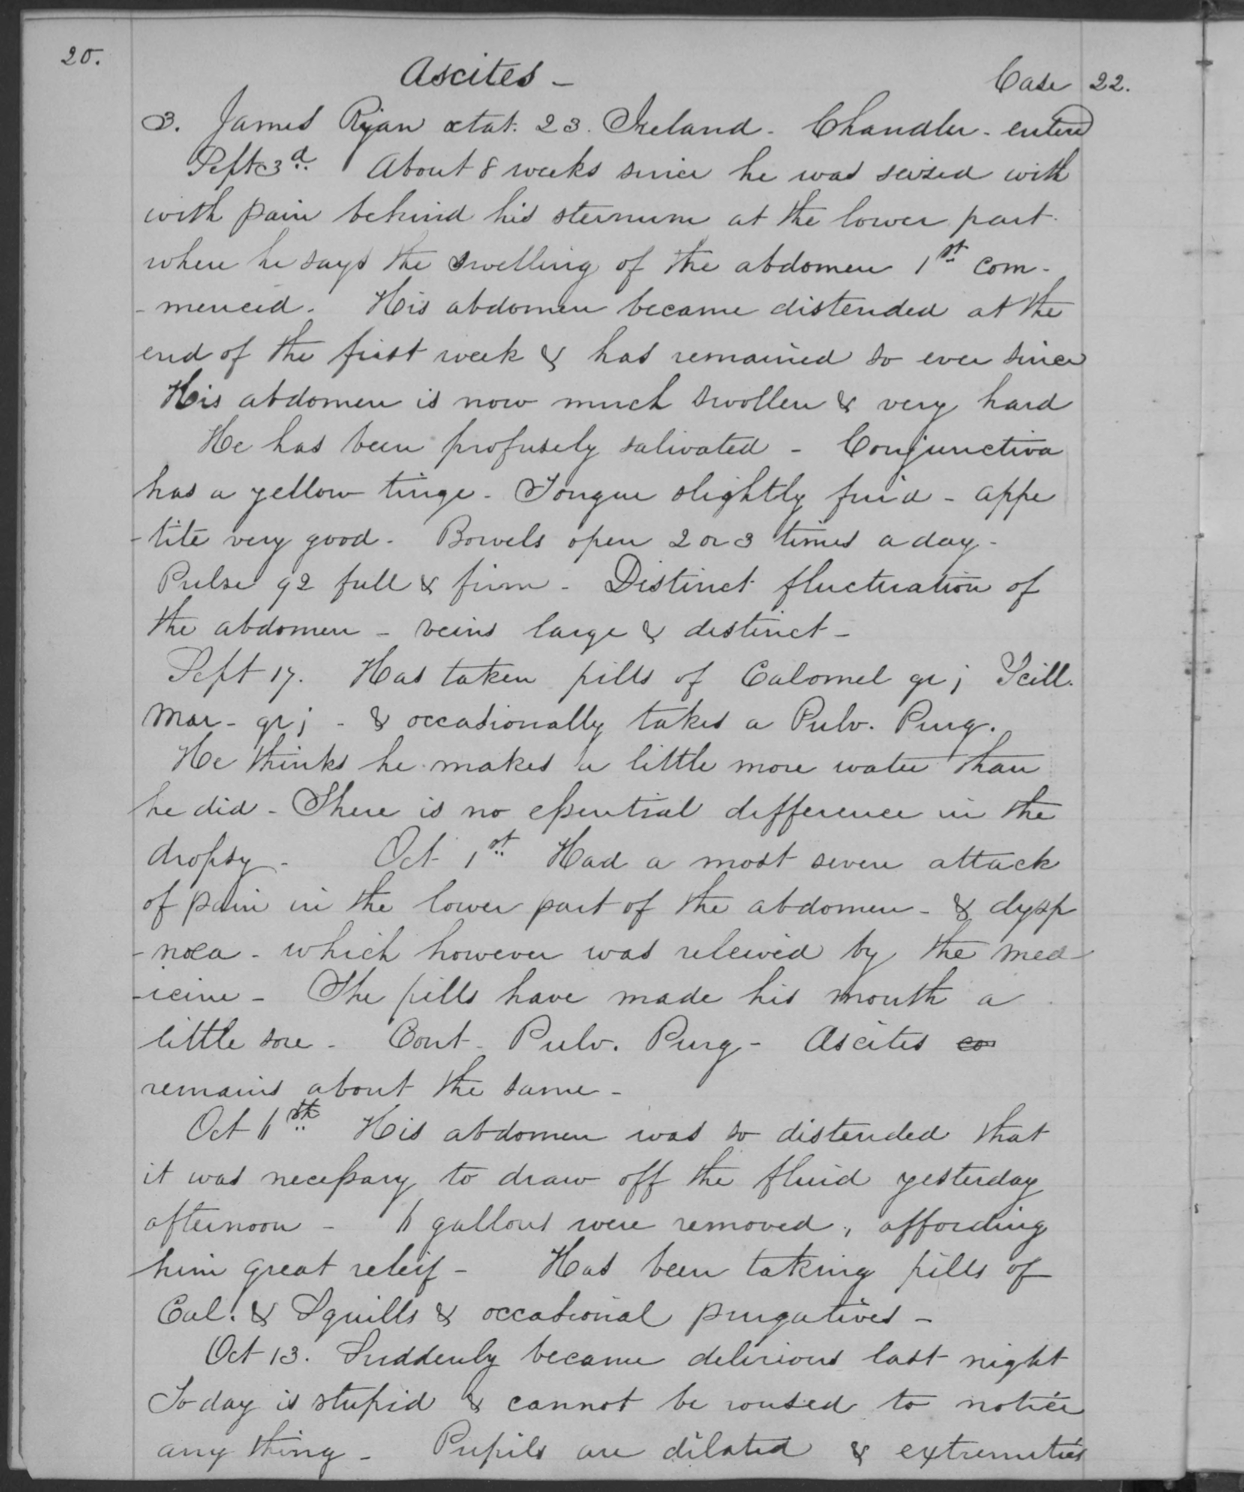 20.
Ascites - Case 22.
3. James Ryan ætat. 23. Ireland - Chandler - entered
Sept 3d. About 8 weeks since he was seized with
with pain behind his sternum at the lower part
where he says the swelling of the abdomen 1st com-
-menced. His abdomen became distended at the
end of the first week & has remained so ever since
His abdomen is now much swollen & very hard
He has been profusely salivated - Conjunctiva
has a yellow tinge - Tongue slightly fur'd - appe
-tite very good - Bowels open 2 or 3 times a day -
Pulse 92 full & firm - Distinct fluctuation of
the abdomen - veins large & distinct -
Sept 17. Has taken pills of Calomel gr j Scill.
Mar - gr j - & occasionally takes a Pulv. Purg.
He thinks he makes a little more water than
he did - There is no essential difference in the
dropsy - Oct 1st Had a most severe attack
of pain in the lower part of the abdomen - & dysp
-noea - which however was releived by the med-
-icine - The pills have made his mouth a
little sore - Cont - Pulv. Purg - Ascites co
remains about the same -
Oct 6th His abdomen was so distended that
it was necessary to draw off the fluid yesterday
afternoon - 6 gallons were removed, affording
him great releif - Has been taking pills of
Cal. & Squills & occasional purgatives -
Oct 13. Suddenly became delirious last night
To day is stupid & cannot be roused to notice
any thing - Pupils are dilated & extremities